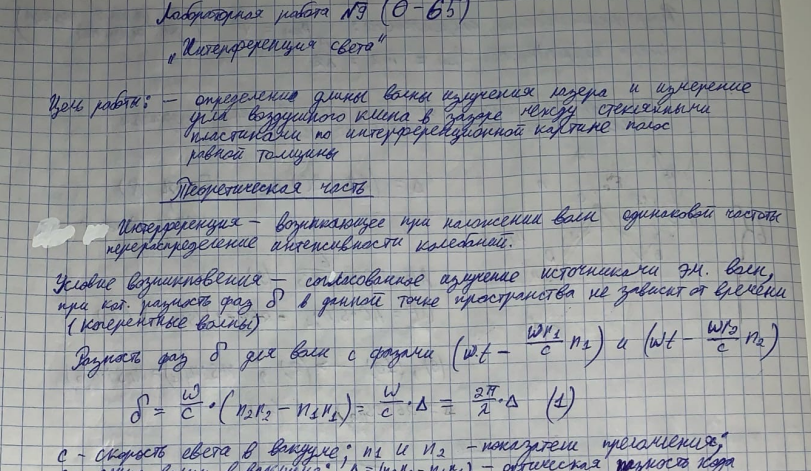 Лабораторная работа №9 (О-65)
„Интерференция света"
Цель работы: — определение длины волны излучения лазера и измерение
угла воздушного клина в зазоре между стеклянными
пластинами по интерференционной картине полос
равной толщины
Теоретическая часть
Интерференция — возникающее при наложении волн одинаковой частоты
перераспределение интенсивности колебаний.
Условие возникновения — согласованное излучение источниками эм. волн,
при кот. разность фаз δ в данной точке пространства не зависит от времени
(когерентные волны)
Разность фаз δ для волн с фазами (ωt − ωr₁/c n₁) и (ωt − ωr₂/c n₂)
δ = ω/c · (r₂n₂ − r₁n₁) = ω/c · Δ = 2π/λ · Δ (1)
c - скорость света в вакууме; n₁ и n₂ - показатели преломления;
оптическая разность хода